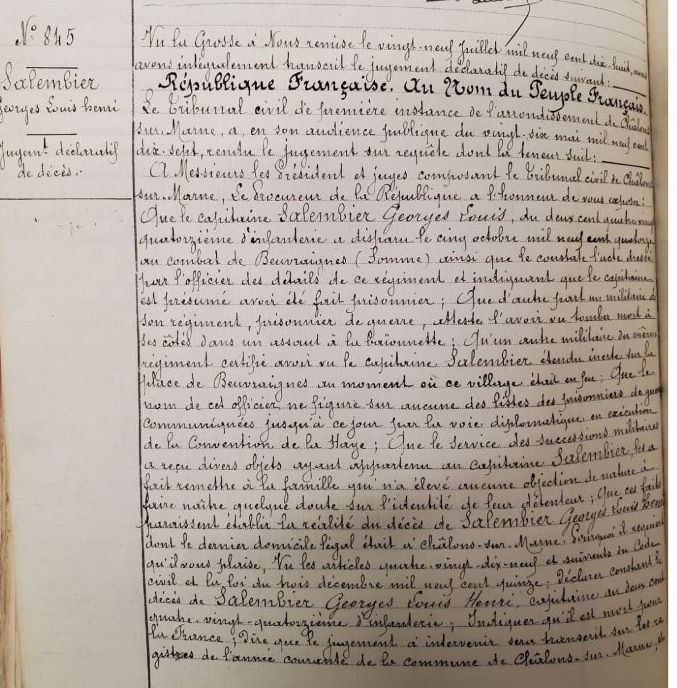 N° 845
Salembier
Georges Louis Henri
Jugemt déclaratif
de décès.
Vu la Grosse à Nous remise le vingt-neuf Juillet mil neuf cent dix-huit, nous
avons intégralement transcrit le jugement déclaratif de décès suivant:
République Française. Au Nom du Peuple Français.
Le Tribunal civil de première instance de l'arrondissement de Châlons
sur-Marne, a, en son audience publique du vingt-six mai mil neuf cent
dix-sept, rendu le jugement sur requête dont la teneur suit:
A Messieurs les Président et juges composant le Tribunal civil de Châlons
sur-Marne, Le Procureur de la République a l'honneur de vous exposer:
Que le capitaine Salembier Georges Louis, du deux cent quatre-vingt
quatorzième d'infanterie a disparu le cinq octobre mil neuf cent quatorze
au combat de Beuvraignes (Somme) ainsi que le constate l'acte dressé
par l'officier des détails de ce régiment et indiquant que le capitaine
est présumé avoir été fait prisonnier; Que d'autre part un militaire de
son régiment, prisonnier de guerre, atteste l'avoir vu tomber mort à
ses côtés dans un assaut à la baïonnette; Qu'un autre militaire du même
régiment certifie avoir vu le capitaine Salembier étendu inerte sur la
place de Beuvraignes au moment où ce village était en feu; Que le
nom de cet officier ne figure sur aucune des listes des prisonniers de guerre
communiquées jusqu'à ce jour par la voie diplomatique en exécution
de la Convention de la Haye; Que le service des successions militaires
a reçu divers objets ayant appartenu au capitaine Salembier, les a
fait remettre à la famille qui n'a élevé aucune objection de nature à
faire naître quelque doute sur l'identité de leur détenteur; Que ces faits
paraissent établir la réalité du décès de Salembier Georges Louis Henri
dont le dernier domicile légal était à Châlons-sur-Marne. Pourquoi il requiert
qu'il vous plaise, Vu les articles quatre-vingt-dix-neuf et suivants du Code
civil et la loi du trois décembre mil neuf cent quinze; Déclarer constant le
décès de Salembier Georges Louis Henri, capitaine au deux cent
quatre-vingt-quatorzième d'infanterie; Indiquer qu'il est mort pour
la France; Dire que le jugement à intervenir sera transcrit sur les re
gistres de l'année courante de la commune de Châlons-sur-Marne; et